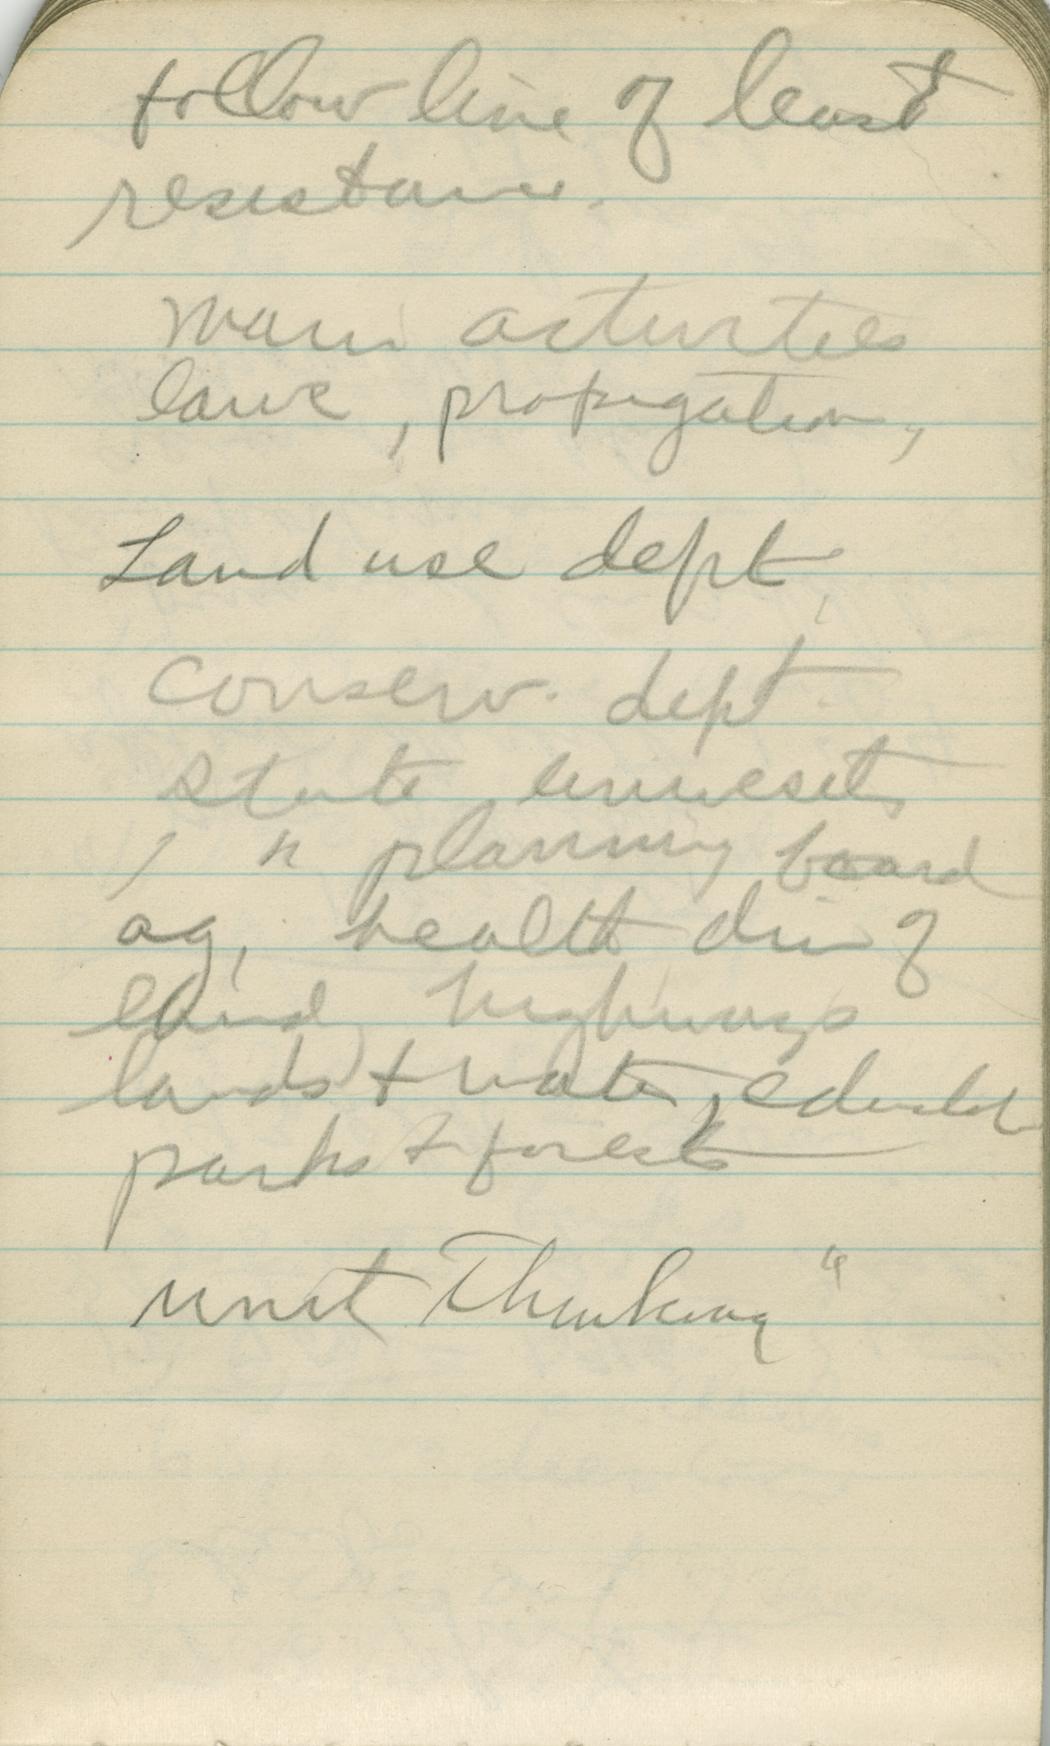 follow line of least
resistance.
Main activities
laws, propagation,
Land use dept.
Conserv. dept
State University
" planning board
ag, health div of
land, highways
lands & water,
parks & forests
unit Thinking"